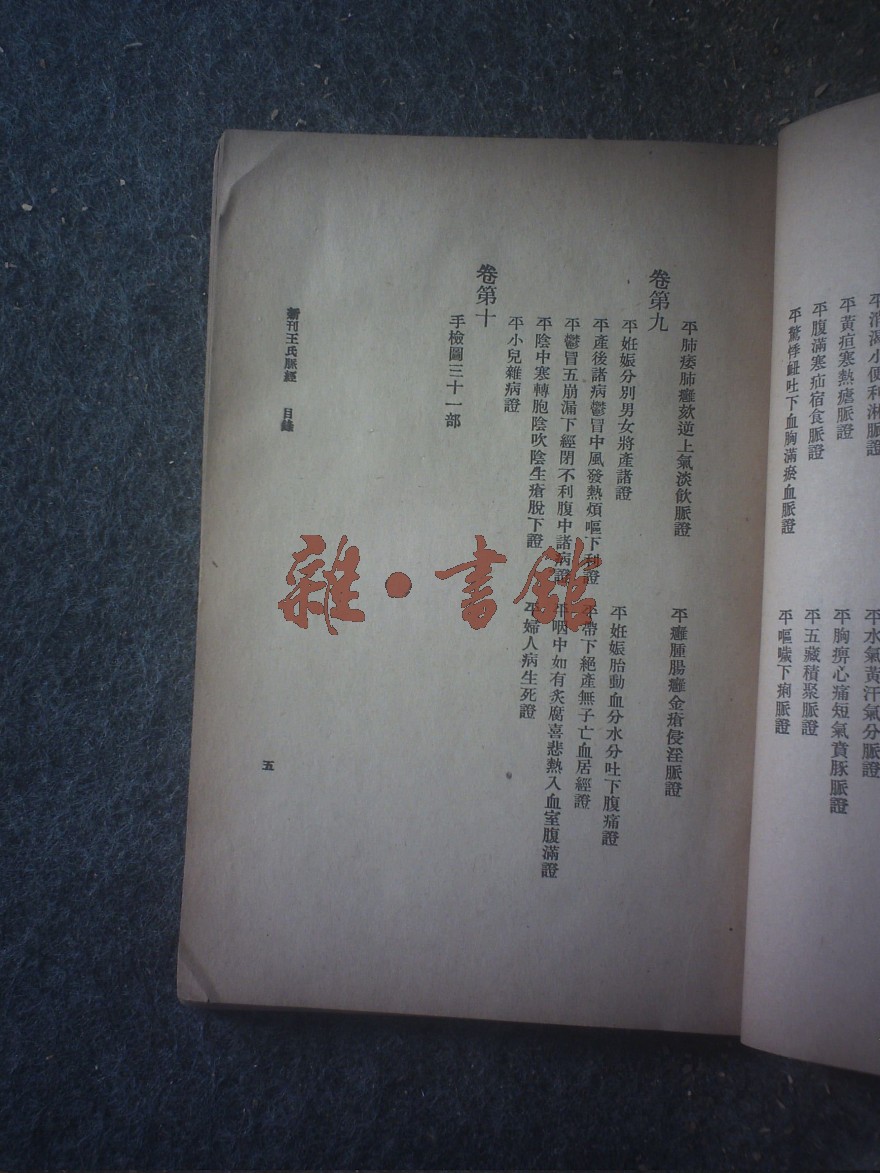 平消渴小便利淋脈證
平水氣黃汗氣分脈證
平黃疸寒熱瘧脈證
平胸痹心痛短氣賁豚脈證
平腹滿寒疝宿食脈證
平五藏積聚脈證
平驚悸衄吐下血胸滿瘀血脈證
平嘔噦下痢脈證
平肺痿肺癰欬逆上氣淡飲脈證
平癰腫腸癰金瘡侵淫脈證
卷第九
平妊娠分別男女將產諸證
平妊娠胎動血分水分吐下腹痛證
平產後諸病鬱冒中風發熱煩嘔下利證
平帶下絕產無子亡血居經證
平鬱冒五崩漏下經閉不利腹中諸病證
平咽中如有炙腐喜悲熱入血室腹滿證
平陰中寒轉胞陰吹陰生瘡脫下證
平婦人病生死證
平小兒雜病證
卷第十
手檢圖三十一部
新刊王氏脈經 目錄
五
雜·書館